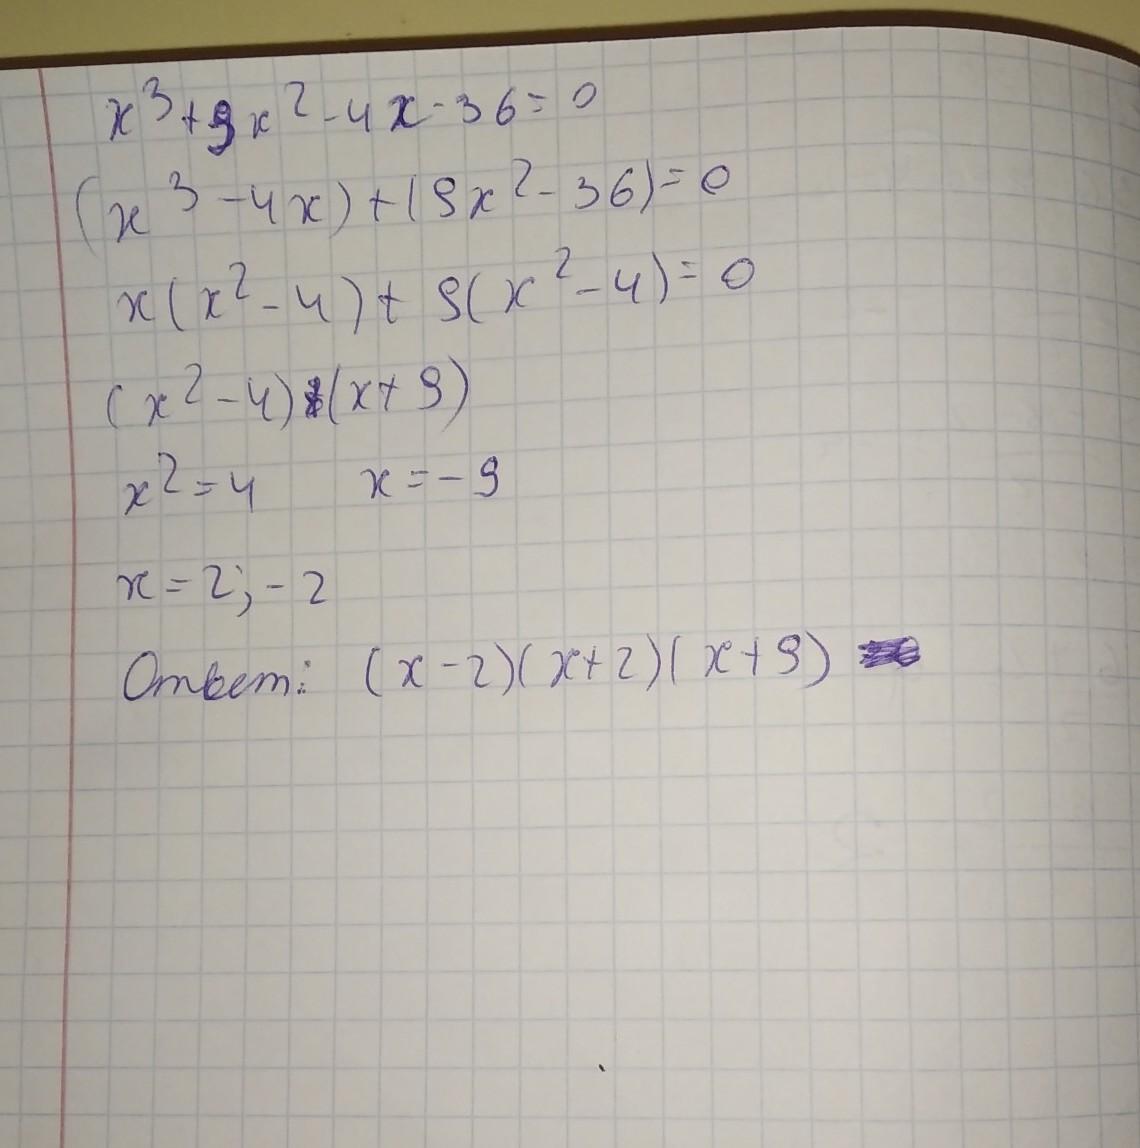 x³+9x²-4x-36=0
(x³-4x)+(9x²-36)=0
x(x²-4)+9(x²-4)=0
(x²-4)(x+9)
x²=4 x=-9
x=2;-2
Ответ: (x-2)(x+2)(x+9)